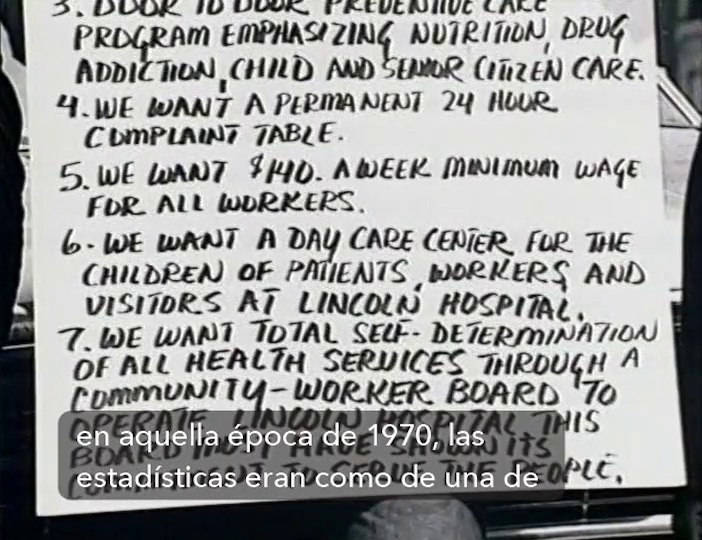 3. DOOR TO DOOR PREVENTIVE CARE
PROGRAM EMPHASIZING NUTRITION, DRUG
ADDICTION, CHILD AND SENIOR CITIZEN CARE.
4. WE WANT A PERMANENT 24 HOUR
COMPLAINT TABLE.
5. WE WANT $140. A WEEK MINIMUM WAGE
FOR ALL WORKERS.
6. WE WANT A DAY CARE CENTER FOR THE
CHILDREN OF PATIENTS, WORKERS AND
VISITORS AT LINCOLN HOSPITAL.
7. WE WANT TOTAL SELF-DETERMINATION
OF ALL HEALTH SERVICES THROUGH A
COMMUNITY-WORKER BOARD TO
OPERATE LINCOLN HOSPITAL THIS
BOARD MUST HAVE SHOWN ITS
COMMITMENT TO SERVE THE PEOPLE.
en aquella época de 1970, las
estadísticas eran como de una de